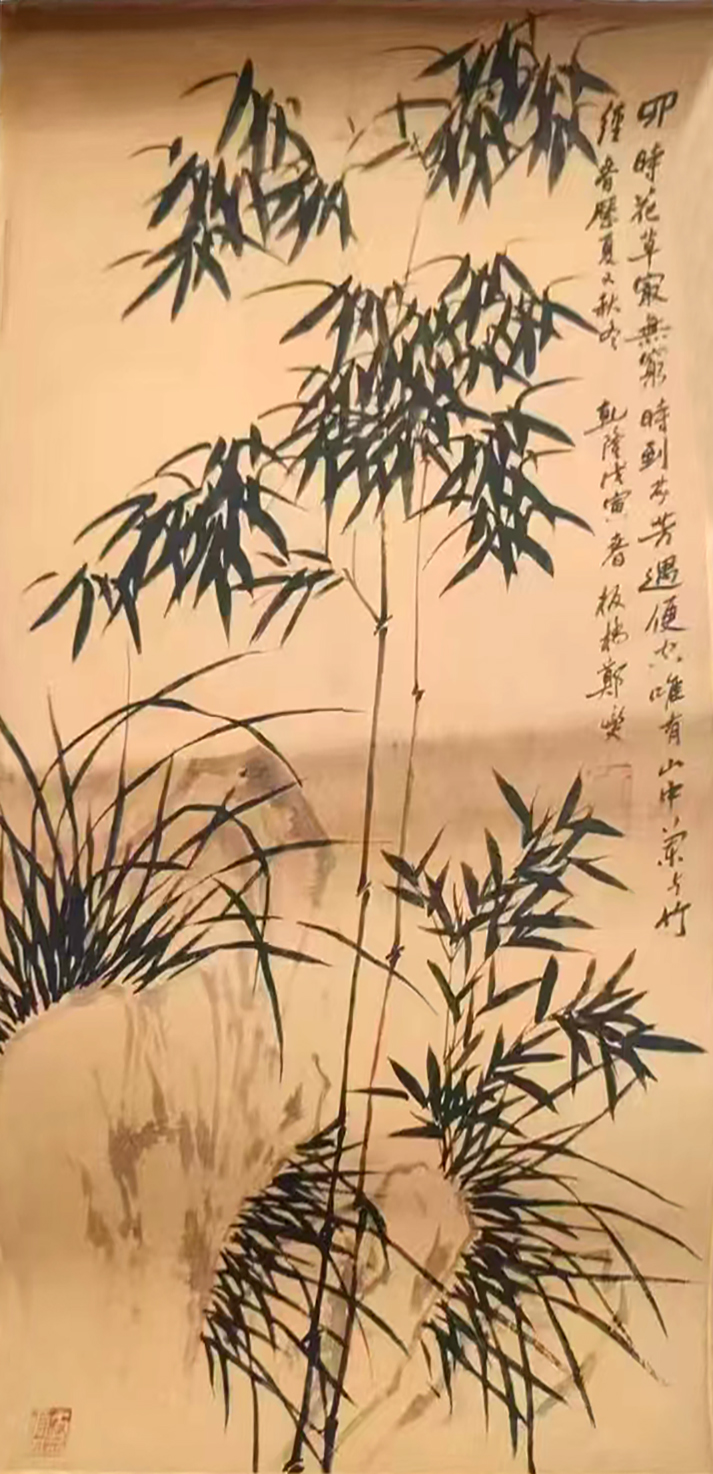 四時花草冣無窮時到芬芳過便空唯有山中蘭与竹
經春歷夏又秋冬 乾隆戊寅春 板橋鄭燮